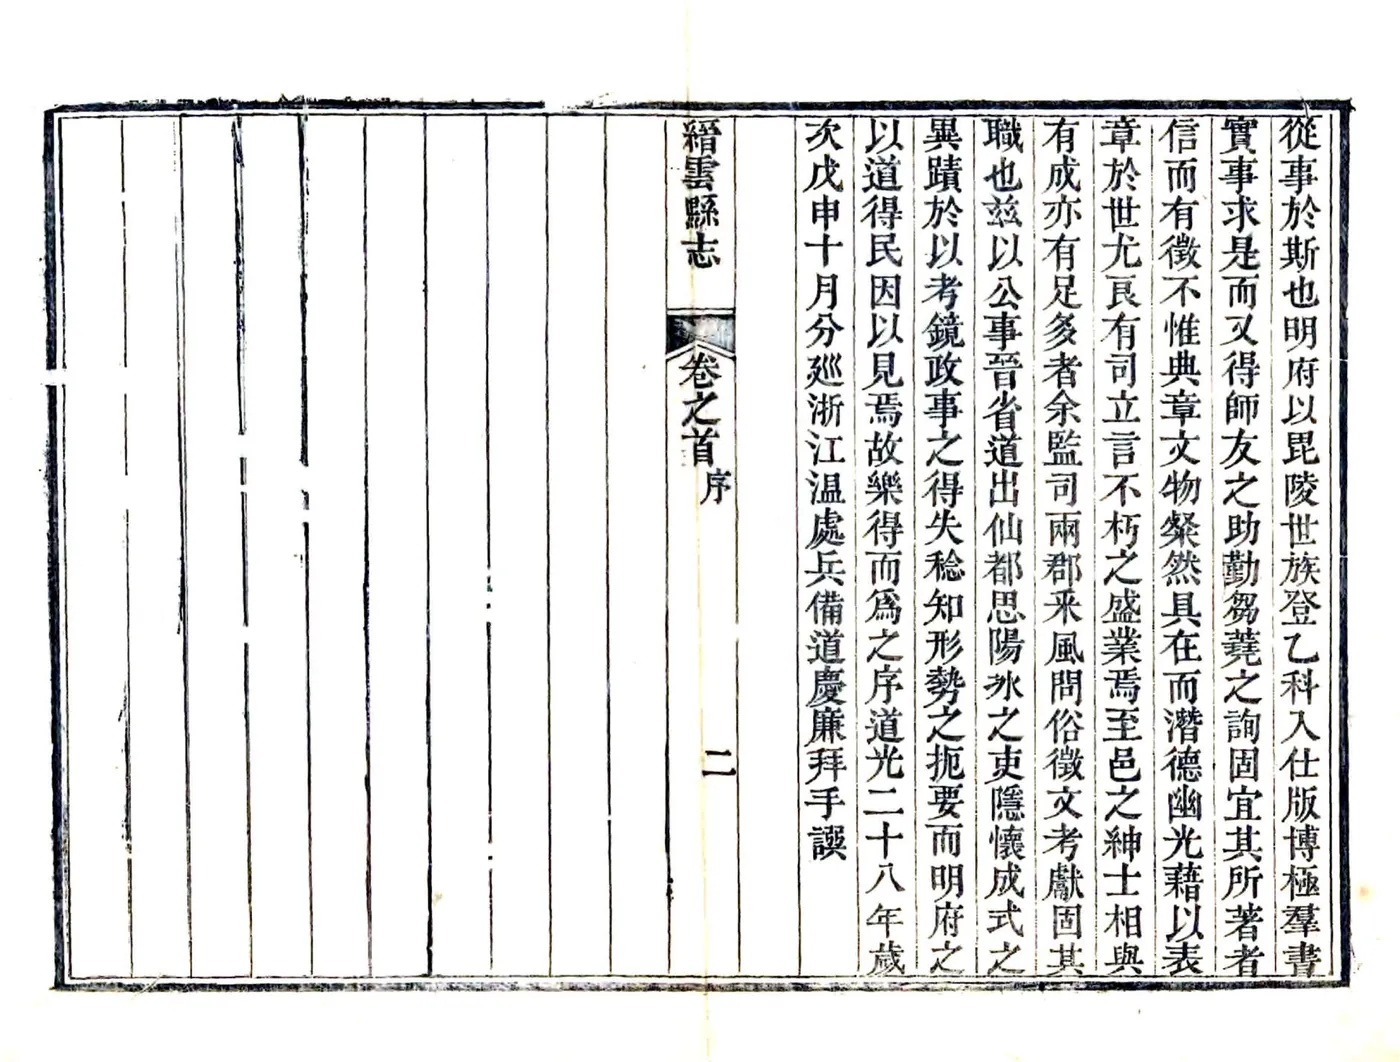 從事於斯也明府以毘陵世族登乙科入仕版博極羣書
實事求是而又得師友之助勤芻蕘之詢固宜其所著者
信而有徵不惟典章文物粲然具在而潛德幽光藉以表
章於世尤良有司立言不朽之盛業焉至邑之紳士相與
有成亦有足多者余監司兩郡采風問俗徵文考獻固其
職也茲以公事晉省道出仙都思陽氷之吏隱懷成式之
異蹟於以考鏡政事之得失稔知形勢之扼要而明府之
以道得民因以見焉故樂得而爲之序道光二十八年歲
次戊申十月分廵浙江温處兵備道慶廉拜手譔
縉雲縣志
卷之首
序
二